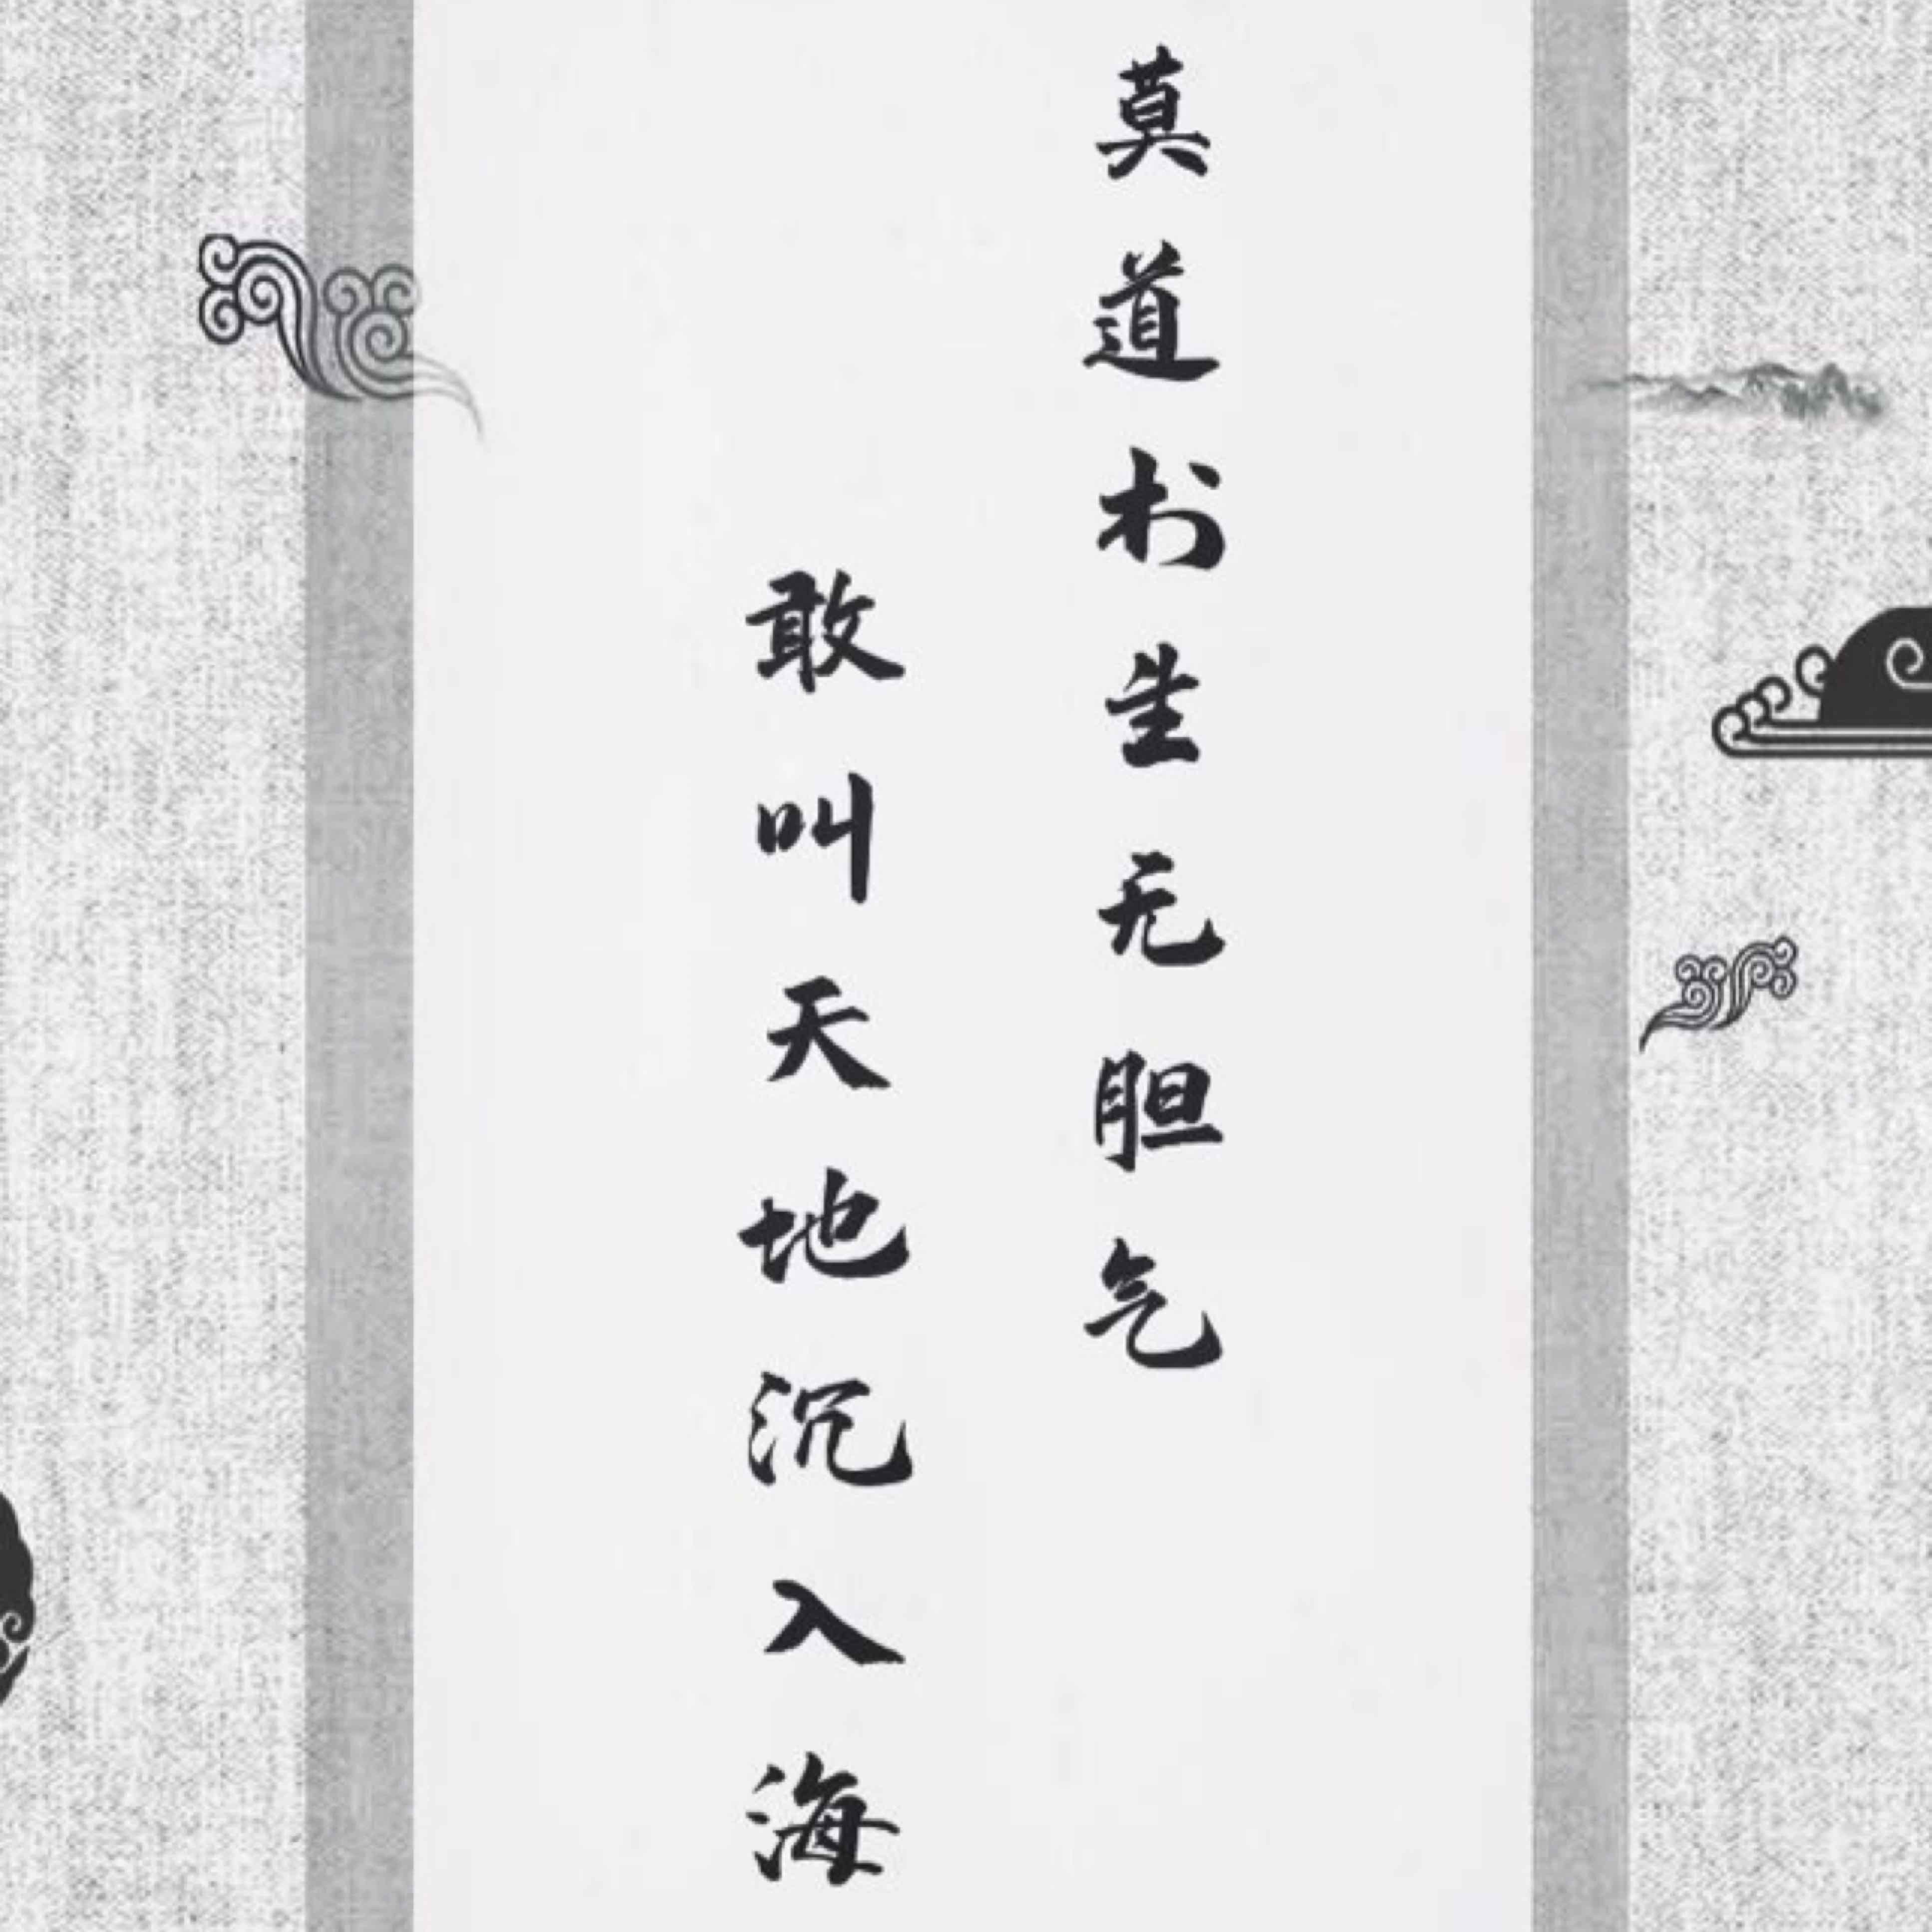 莫道书生无胆气
敢叫天地沉入海